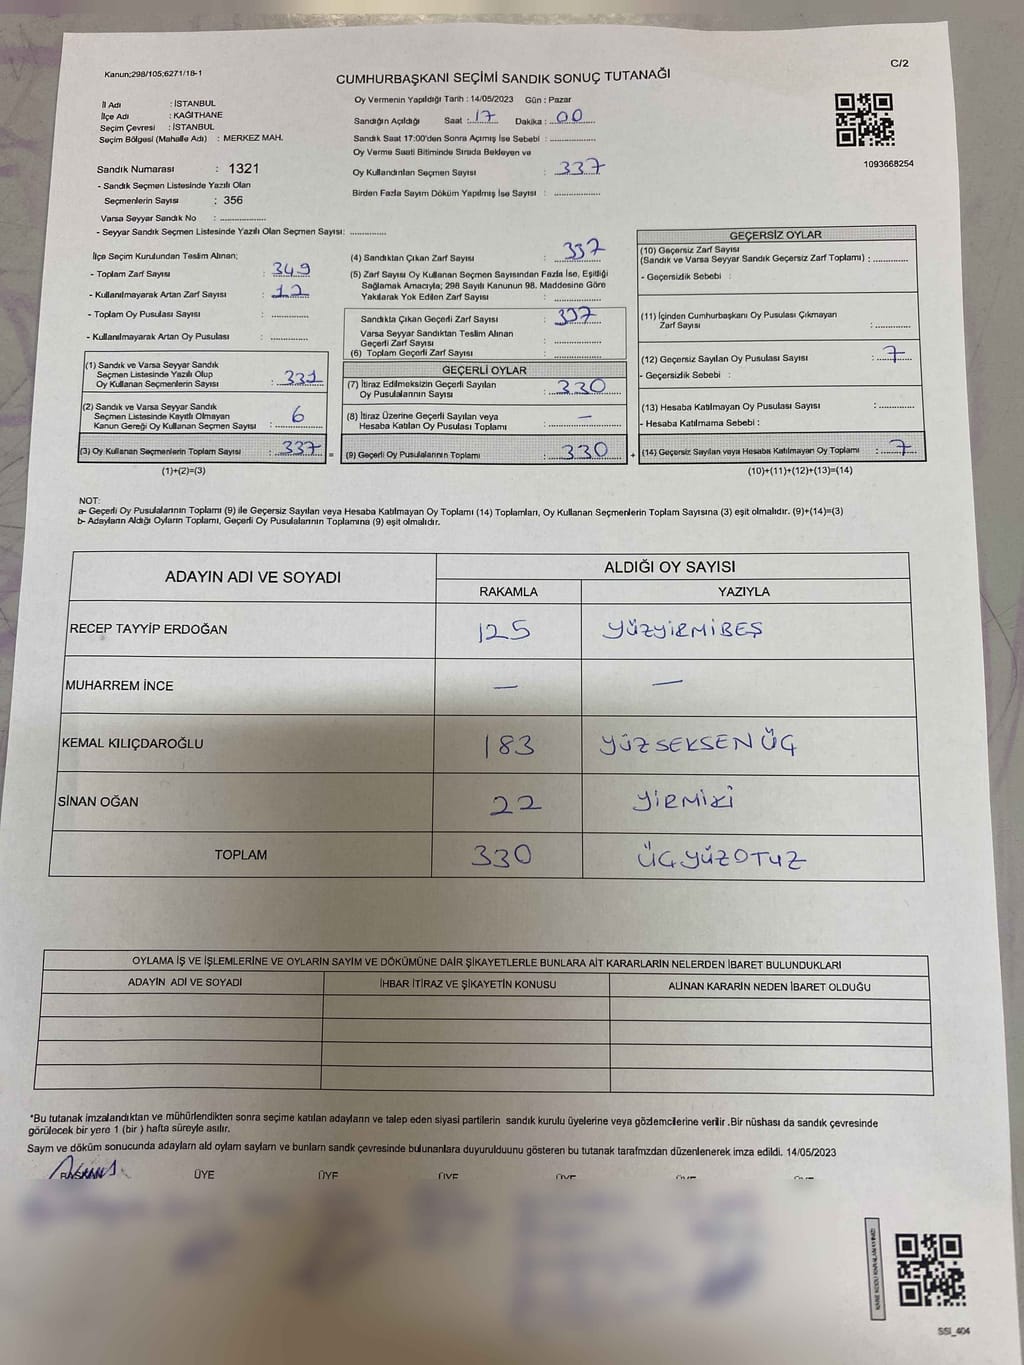 Kanun;298/105;6271/18-1
CUMHURBAŞKANI SEÇİMİ SANDIK SONUÇ TUTANAĞI
C/2
İl Adı : İSTANBUL
İlçe Adı : KAĞITHANE
Seçim Çevresi : İSTANBUL
Seçim Bölgesi (Mahalle Adı) : MERKEZ MAH.
Oy Vermenin Yapıldığı Tarih : 14/05/2023 Gün : Pazar
Sandığın Açıldığı Saat : 17 Dakika : 00
Sandık Saat 17:00'den Sonra Açımış İse Sebebi : ..............
Oy Verme Saati Bitiminde Sırada Bekleyen ve
Oy Kullandırılan Seçmen Sayısı : 337
Birden Fazla Sayım Döküm Yapılmış İse Sayısı : ..............
1093668254
Sandık Numarası : 1321
- Sandık Seçmen Listesinde Yazılı Olan
Seçmenlerin Sayısı : 356
Varsa Seyyar Sandık No : ..............
- Seyyar Sandık Seçmen Listesinde Yazılı Olan Seçmen Sayısı: ..............
İlçe Seçim Kurulundan Teslim Alınan;
- Toplam Zarf Sayısı : 349
- Kullanılmayarak Artan Zarf Sayısı : 12
- Toplam Oy Pusulası Sayısı : ..............
- Kullanılmayarak Artan Oy Pusulası : ..............
(1) Sandık ve Varsa Seyyar Sandık
Seçmen Listesinde Yazılı Olup
Oy Kullanan Seçmenlerin Sayısı : 331
(2) Sandık ve Varsa Seyyar Sandık
Seçmen Listesinde Kayıtlı Olmayan
Kanun Gereği Oy Kullanan Seçmen Sayısı : 6
(3) Oy Kullanan Seçmenlerin Toplam Sayısı : 337 =
(1)+(2)=(3)
(4) Sandıktan Çıkan Zarf Sayısı : 337
(5) Zarf Sayısı Oy Kullanan Seçmen Sayısından Fazla İse, Eşitliği
Sağlamak Amacıyla; 298 Sayılı Kanunun 98. Maddesine Göre
Yakılarak Yok Edilen Zarf Sayısı : ..............
Sandıkta Çıkan Geçerli Zarf Sayısı : 337
Varsa Seyyar Sandıktan Teslim Alınan
Geçerli Zarf Sayısı : ..............
(6) Toplam Geçerli Zarf Sayısı : ..............
GEÇERLİ OYLAR
(7) İtiraz Edilmeksizin Geçerli Sayılan
Oy Pusulalarının Sayısı : 330
(8) İtiraz Üzerine Geçerli Sayılan veya
Hesaba Katılan Oy Pusulası Toplamı : —
(9) Geçerli Oy Pusulalarının Toplamı : 330 +
GEÇERSİZ OYLAR
(10) Geçersiz Zarf Sayısı
(Sandık ve Varsa Seyyar Sandık Geçersiz Zarf Toplamı) : ..............
- Geçersizlik Sebebi :
(11) İçinden Cumhurbaşkanı Oy Pusulası Çıkmayan
Zarf Sayısı : ..............
(12) Geçersiz Sayılan Oy Pusulası Sayısı : 7
- Geçersizlik Sebebi :
(13) Hesaba Katılmayan Oy Pusulası Sayısı : ..............
- Hesaba Katılmama Sebebi :
(14) Geçersiz Sayılan veya Hesaba Katılmayan Oy Toplamı : 7
(10)+(11)+(12)+(13)=(14)
NOT:
a- Geçerli Oy Pusulalarının Toplamı (9) ile Geçersiz Sayılan veya Hesaba Katılmayan Oy Toplamı (14) Toplamları, Oy Kullanan Seçmenlerin Toplam Sayısına (3) eşit olmalıdır. (9)+(14)=(3)
b- Adayların Aldığı Oyların Toplamı, Geçerli Oy Pusulalarının Toplamına (9) eşit olmalıdır.
ADAYIN ADI VE SOYADI
ALDIĞI OY SAYISI
RAKAMLA YAZIYLA
RECEP TAYYİP ERDOĞAN 125 YÜZYİRMİBEŞ
MUHARREM İNCE — —
KEMAL KILIÇDAROĞLU 183 YÜZ SEKSEN ÜÇ
SİNAN OĞAN 22 YİRMİKİ
TOPLAM 330 ÜÇYÜZOTUZ
OYLAMA İŞ VE İŞLEMLERİNE VE OYLARIN SAYIM VE DÖKÜMÜNE DAİR ŞİKAYETLERLE BUNLARA AİT KARARLARIN NELERDEN İBARET BULUNDUKLARI
ADAYIN ADI VE SOYADI İHBAR İTİRAZ VE ŞİKAYETİN KONUSU ALINAN KARARIN NEDEN İBARET OLDUĞU
*Bu tutanak imzalandıktan ve mühürlendikten sonra seçime katılan adayların ve talep eden siyasi partilerin sandık kurulu üyelerine veya gözlemcilerine verilir .Bir nüshası da sandık çevresinde
görülecek bir yere 1 (bir ) hafta süreyle asılır.
Sayım ve döküm sonucunda adayların ald oyların sayların ve bunların sandk çevresinde bulunanlara duyurulduunu gösteren bu tutanak tarafmzdan düzenlenerek imza edildi. 14/05/2023
BAŞKAN ÜYE ÜYE ÜYE ÜYE ÜYE ÜYE
SSI_404